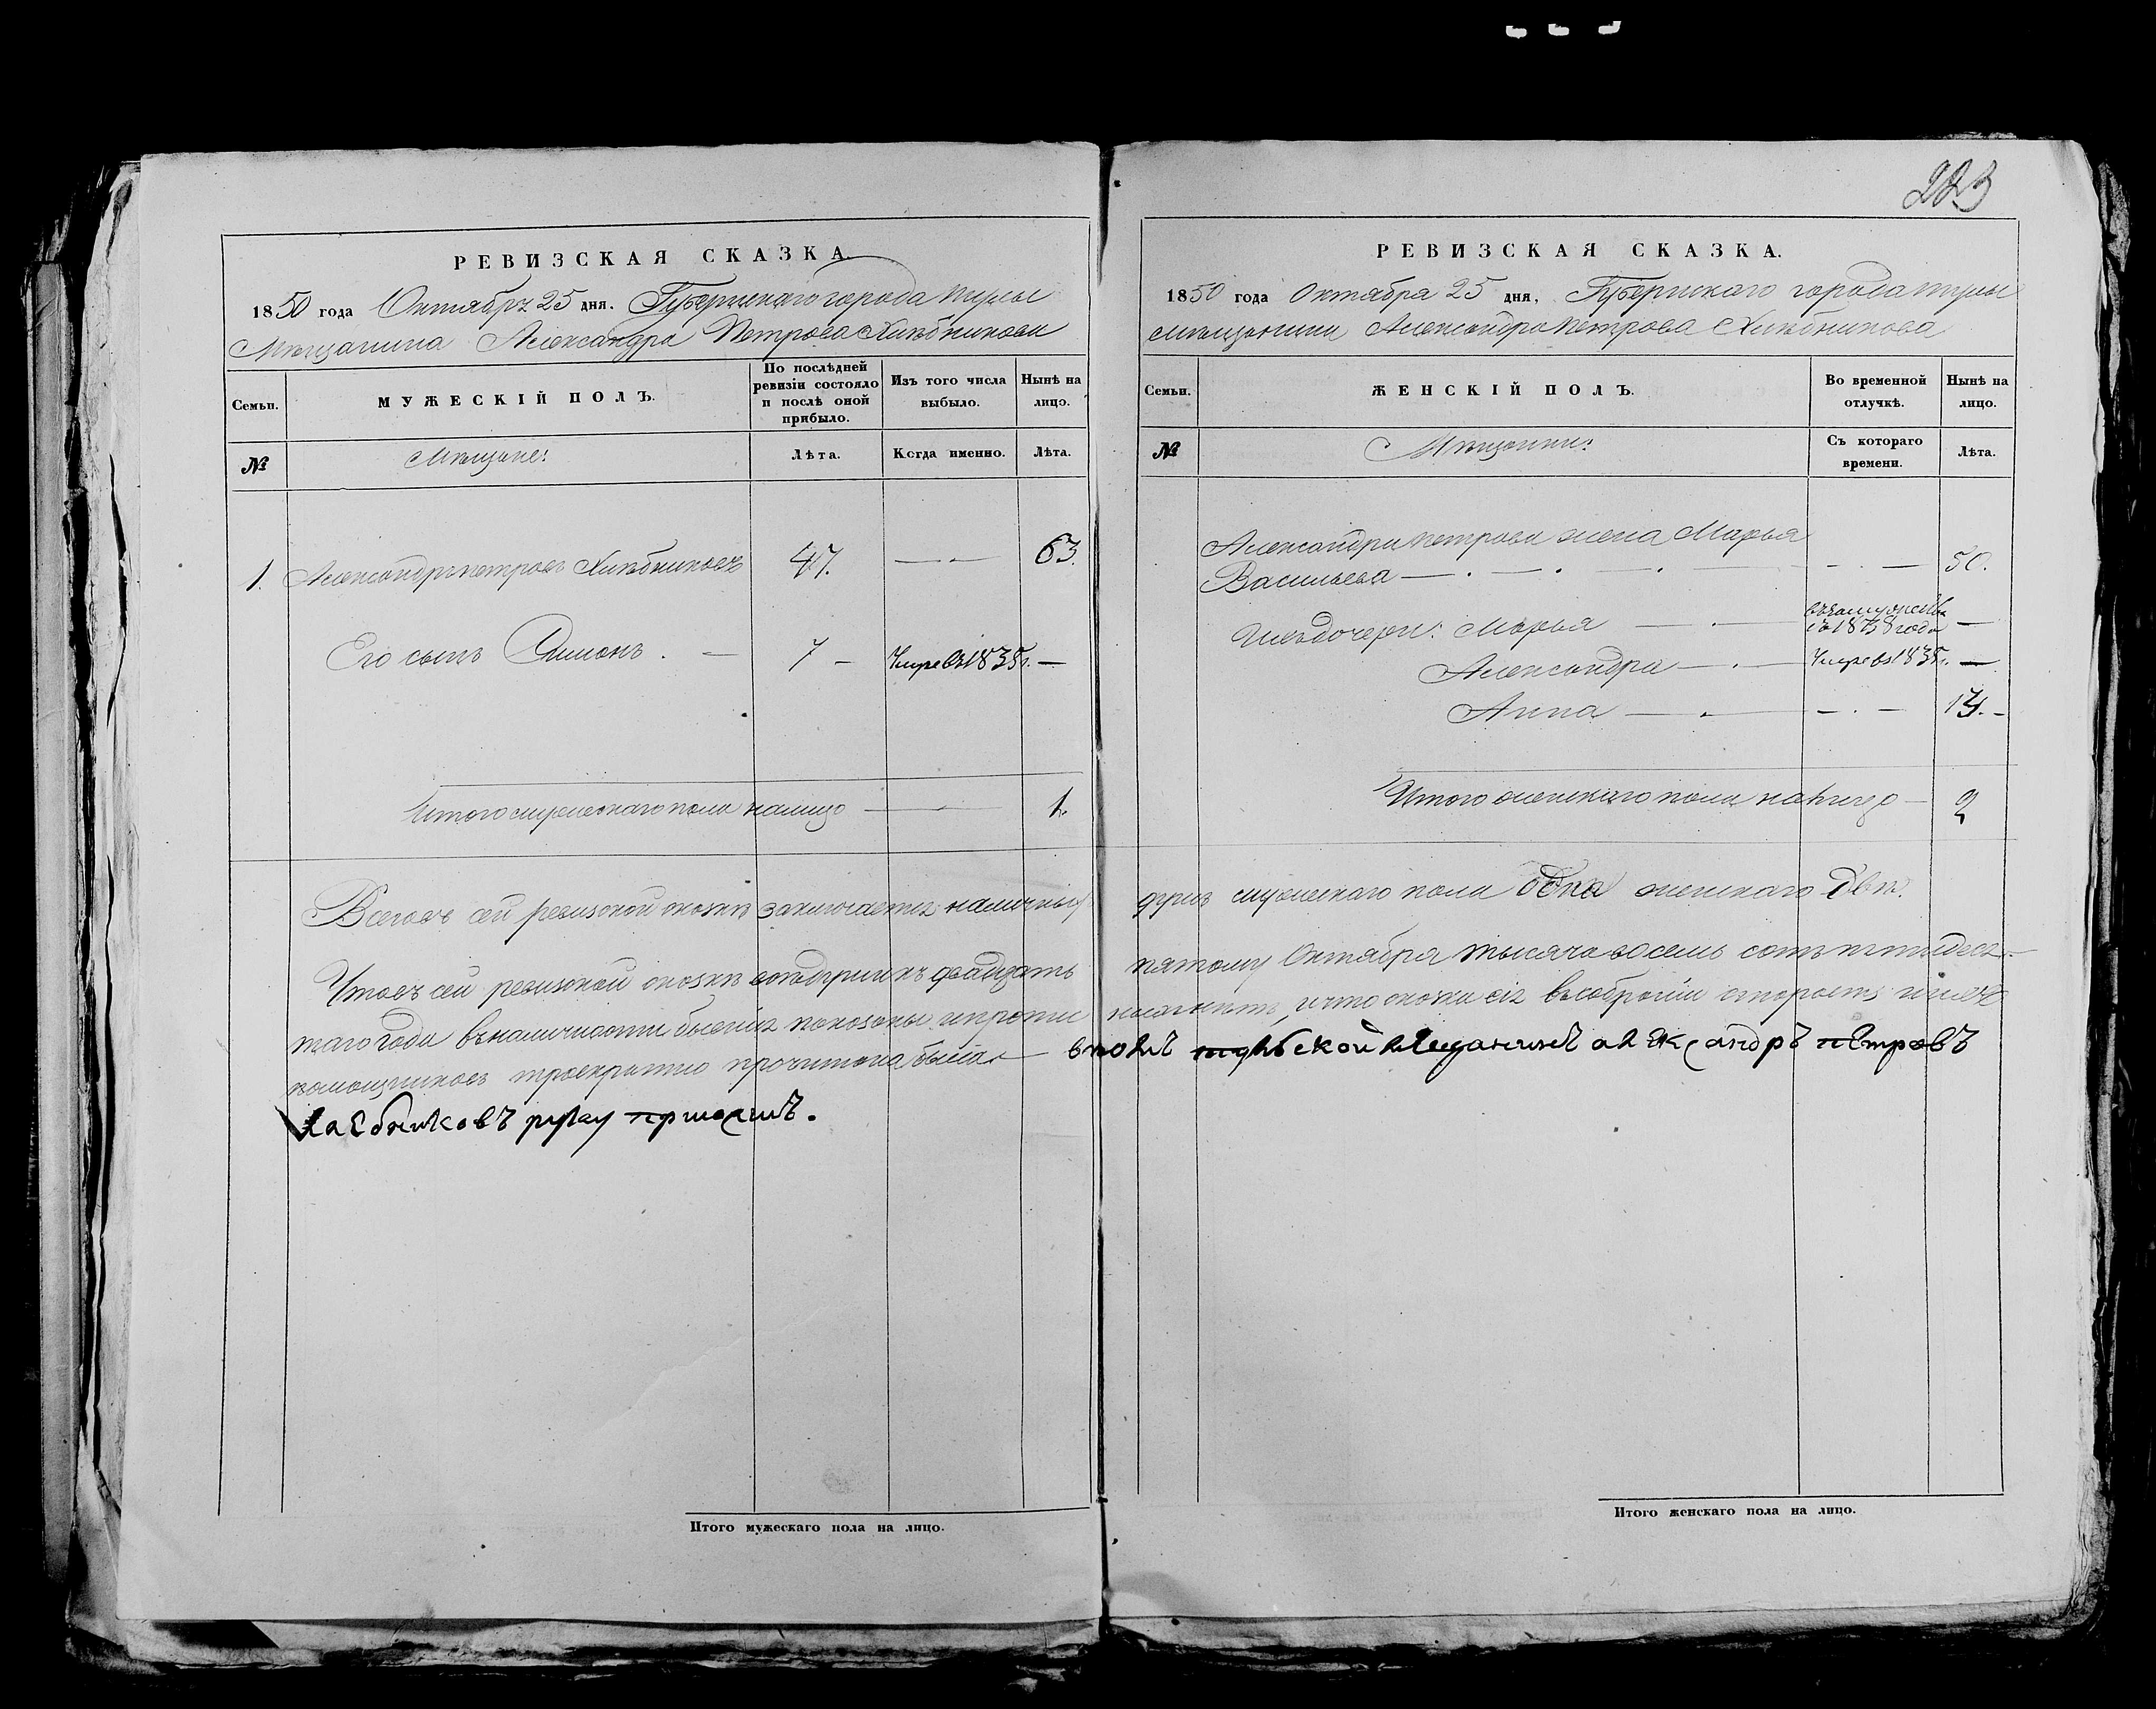 223
РЕВИЗСКАЯ СКАЗКА.
1850 года Октября 25 дня. Губернскаго города Тулы
Мещанина Александра Петрова Хлебникова
Семьи.
МУЖЕСКІЙ ПОЛЪ.
По послѣдней ревизіи состояло и послѣ оной прибыло.
Изъ того числа выбыло.
Нынѣ на лицо.
№
Мещане:
Лѣта.
Когда именно.
Лѣта.
1. Александръ Петровъ Хлебниковъ 47. — 63.
Его сынъ Симонъ. — 7 — Умре въ 1835 г. —
Итого мужескаго пола налицо — 1.
РЕВИЗСКАЯ СКАЗКА.
1850 года Октября 25 дня, Губернскаго города Тулы
мещанина Александра Петрова Хлебникова
Семьи.
ЖЕНСКІЙ ПОЛЪ.
Во временной отлучкѣ.
Нынѣ на лицо.
№
Мещанки:
Съ котораго времени.
Лѣта.
Александра Петрова жена Марья
Васильева — . — . — . — 50.
Ихъ дочери: Марья — . — въ замужстве съ 1838 года —
Александра — . — Умре въ 1835 г. —
Анна — . — — . — 14. —
Итого женскаго пола налицо — 2
Всего въ сей ревизской сказке заключается наличныхъ душъ мужескаго пола одна женскаго две.
Что въ сей ревизской сказке все к двадцать пятому Октября тысяча восемь сотъ пятидеся-
таго года въ наличности бывшия показаны и прописи и что сказка сія въ собраніи старость и ихъ
помощниковъ троекратно прочитана была — в томъ тульской мещанинъ александръ петровъ
хлебниковъ руку приложилъ.
Итого мужескаго пола на лицо.
Итого женскаго пола на лицо.